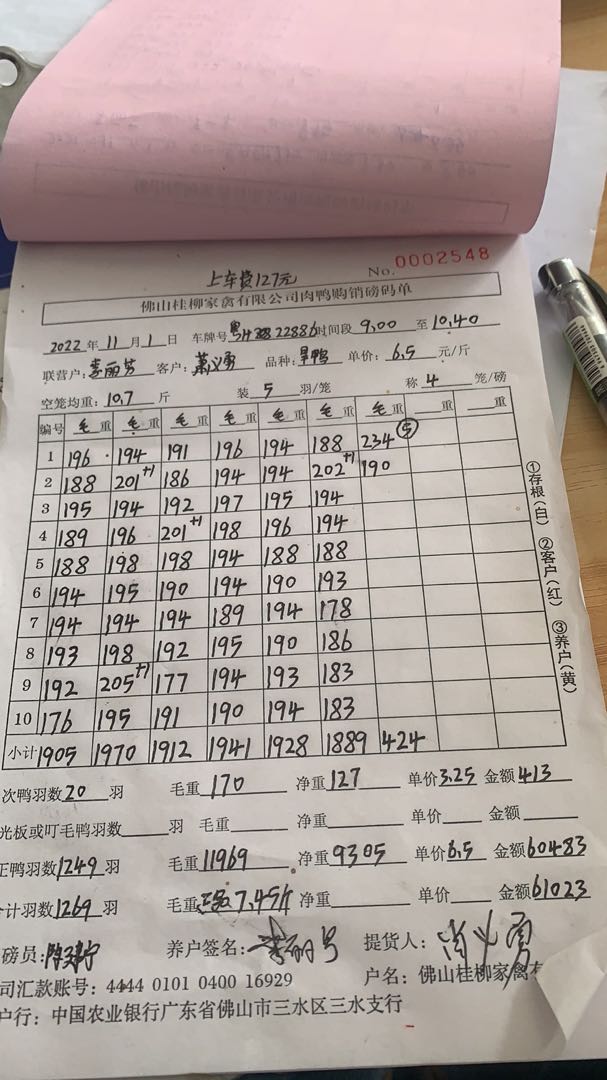 上车费127元
No. 0002548
佛山桂柳家禽有限公司肉鸭购销磅码单
2022年11月1日 车牌号 22886 时间段 9,00 至 10,40
联营户:李丽芳 客户:萧义勇 品种:旱鸭 单价:6.5 元/斤
空笼均重:10.7 斤 装 5 羽/笼 称 4 笼/磅
编号 毛重 毛重 毛重 毛重 毛重 毛重 毛重 重 重
1 196 194 191 196 194 188 234 ⑤
2 188 201+1 186 194 194 202+1 190
3 195 194 192 197 195 194
4 189 196 201+1 198 196 194
5 188 198 198 194 188 188
6 194 195 190 194 190 193
7 194 194 194 189 194 178
8 193 198 192 195 190 186
9 192 205+1 177 194 193 183
10 176 195 191 190 194 183
小计 1905 1970 1912 1941 1928 1889 424
①存根(白) ②客户(红) ③养户(黄)
次鸭羽数 20 羽 毛重 170 净重 127 单价 3.25 金额 413
光板或叮毛鸭羽数 羽 毛重 净重 单价 金额
正鸭羽数 1249 羽 毛重 11969 净重 9305 单价 6.5 金额 60483
计羽数 1269 羽 毛重 7.45斤 净重 单价 金额 61023
磅员: 养户签名:李丽芳 提货人:肖义勇
司汇款账号:4444 0101 0400 16929 户名:佛山桂柳家禽有
户行:中国农业银行广东省佛山市三水区三水支行